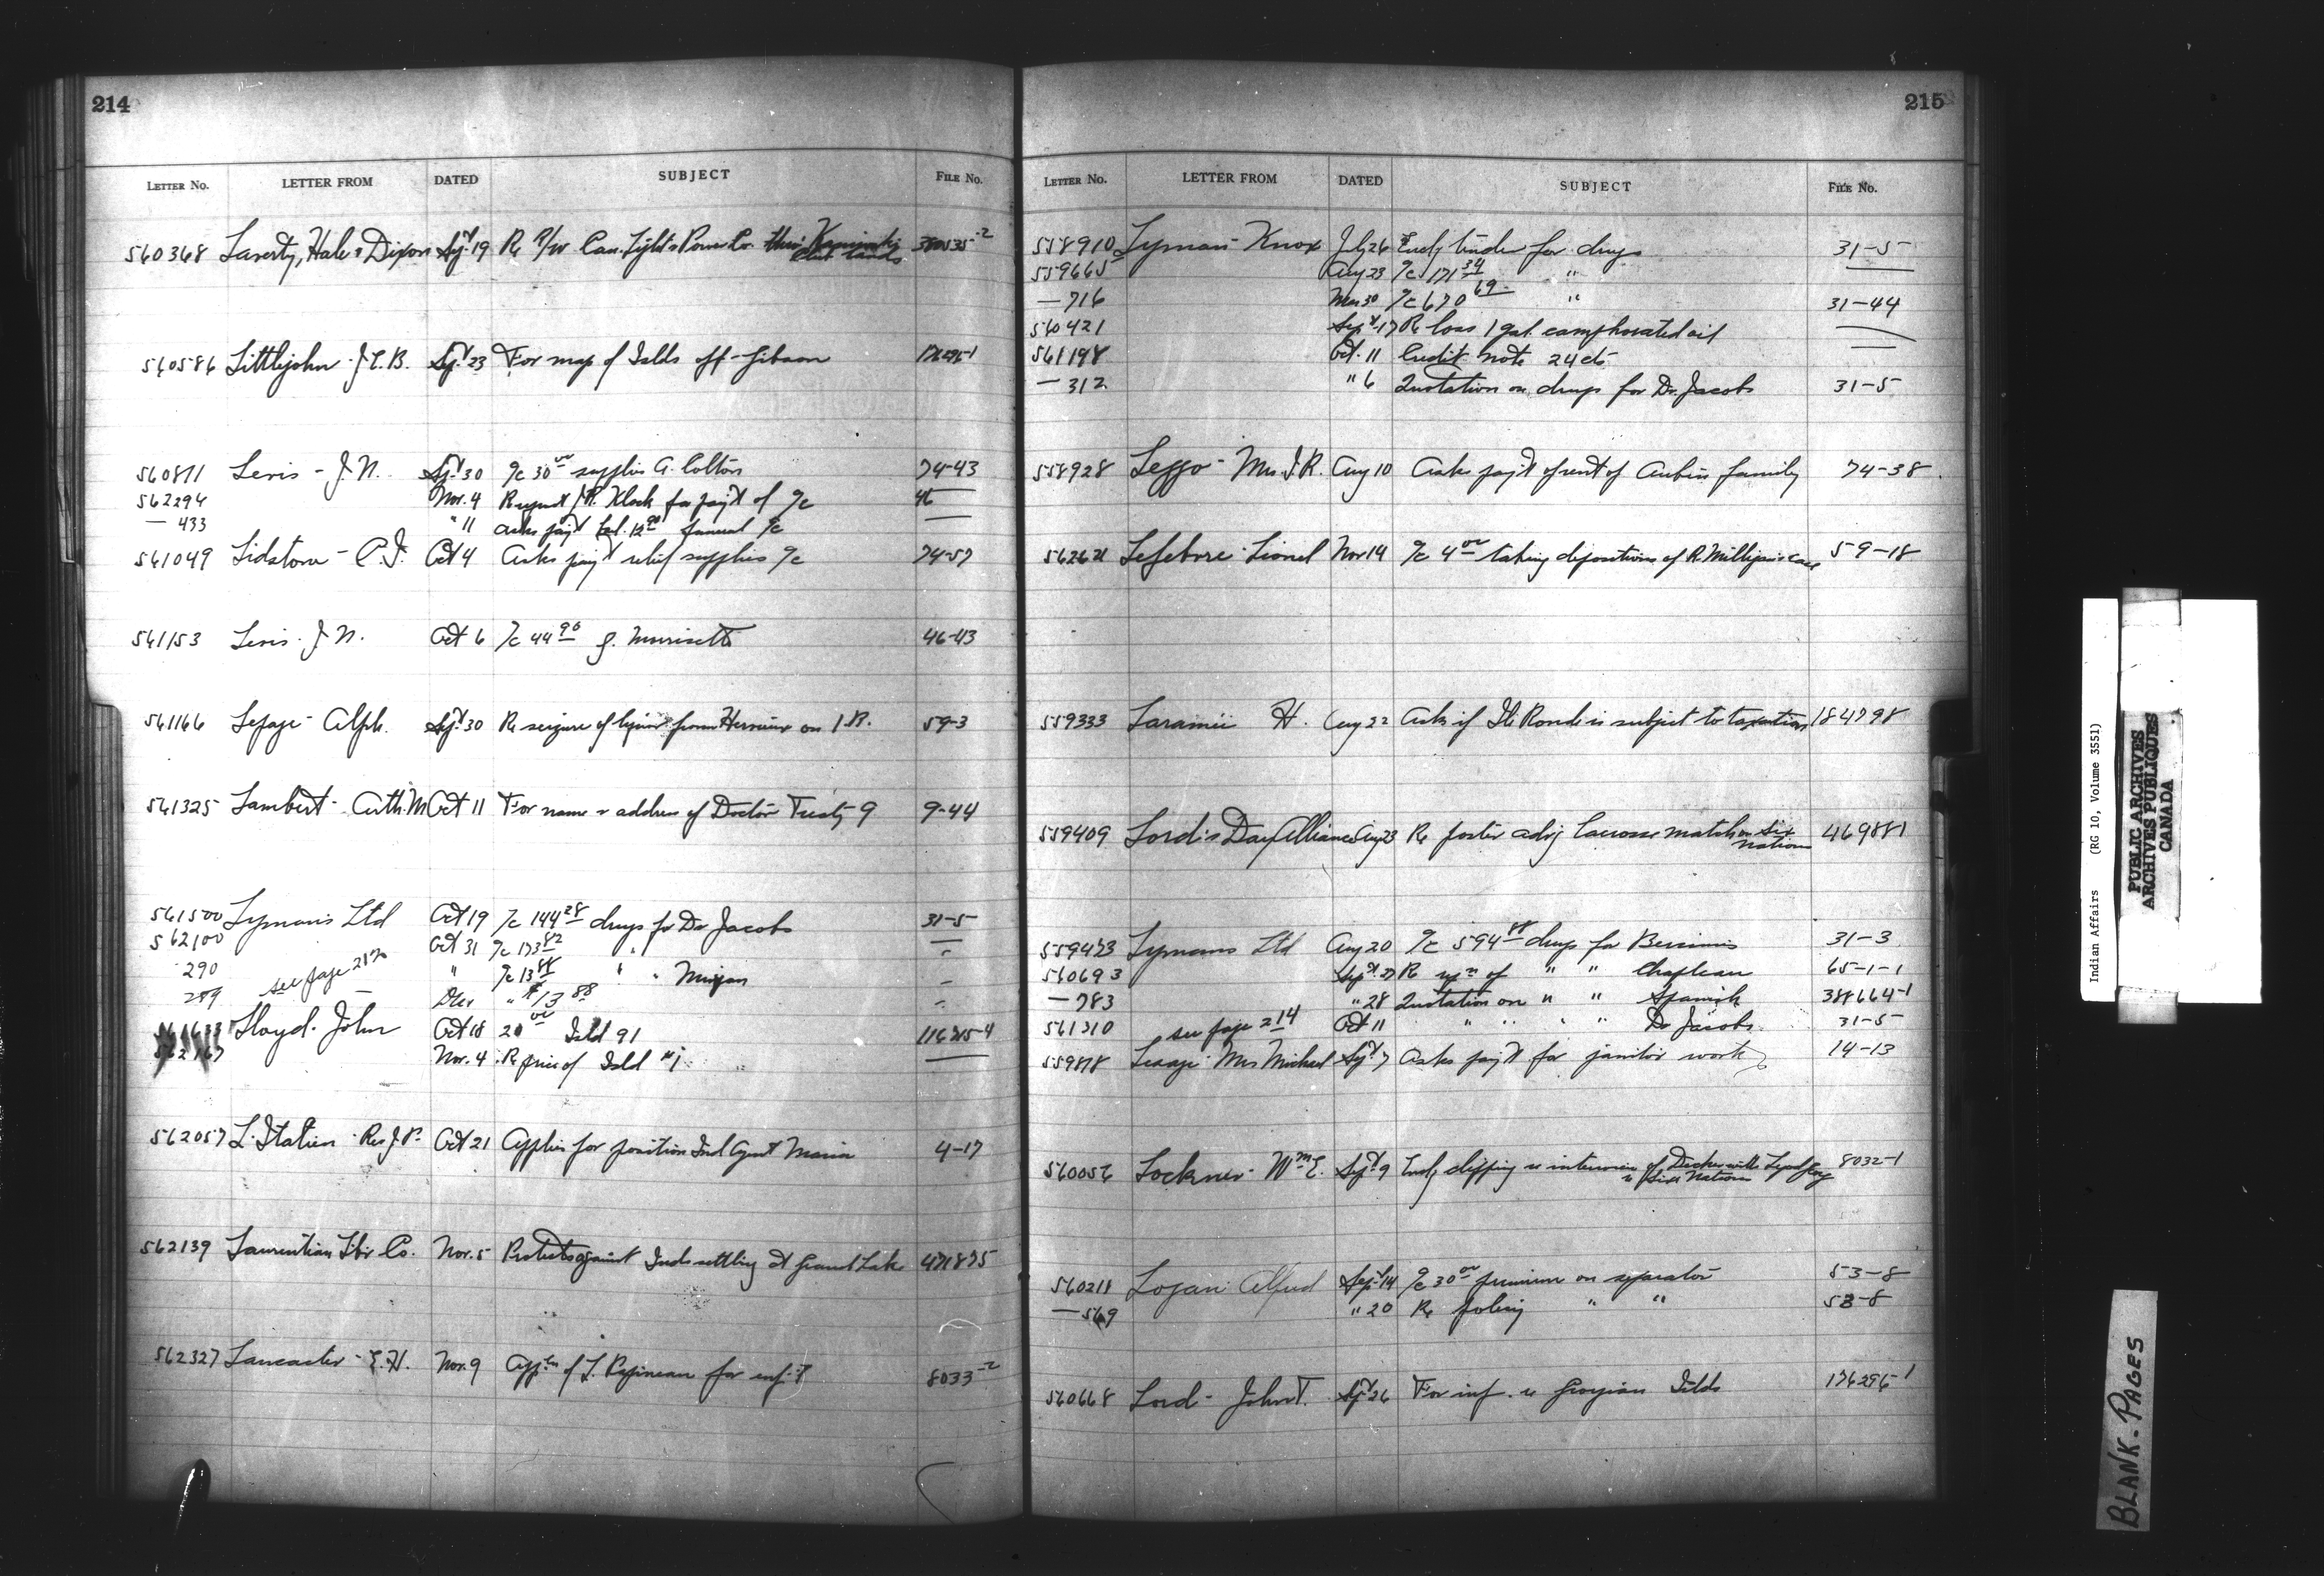 214
LETTER No. LETTER FROM DATED SUBJECT FILE No.
560368 Laverty, Hale & Dixon Sept 19 Re R/W Can. Light & Power Co. lands
560586 Littlejohn - J.E.B. Sept 23 For map of Islds off Gibson
560811 Levis - J.N. Sept 30 a/c 30 00 supplies 74-43
562294 Nov. 4 Request J.R. Klock for pay't of a/c 46
— 433 " 11 asks pay't bal. 12 funeral a/c —
561049 Lidstone - Oct 4 Asks pay't relief supplies a/c 74-57
561153 Levis - J.N. Oct 6 a/c 44 90 46-43
561166 Lepage - Alph. Sept 30 Re seizure of liquor from on I.R. 59-3
561325 Lambert - Arth. M Oct 11 For name & address of Doctor Treaty 9 9-44
561500 Lymans Ltd Oct 19 a/c 144 28 drugs for Dr Jacobs 31-5
562100 Oct 31 a/c 173 82 " —
290 " a/c 13 88 " " –
289 see page 217 Dec " $13 88 –
561633 Lloyd - John Oct 18 20 00 Isld 91 116215-4
562167 Nov. 4 Re price of Isld "j" —
562057 Rev J.P. Oct 21 Applies for position Ind Agent Maria 4-17
562139 Laurentian Lbr Co. Nov. 5 Protests against Inds settling at Grand Lake 471875
562327 Lancaster - E.H. Nov. 9 App'n of L. Papineau for enf't 8033-2
215
LETTER No. LETTER FROM DATED SUBJECT FILE No.
558910 Lyman - Knox July 26 Encl. tender for drugs 31-5
559665 Aug 23 a/c 171 34 " —
— 716 30 a/c 670 69 " 31-44
560421 Sept 17 Re loss 1 gal. camphorated oil —
561198 Oct. 11 Credit note 24 cts —
— 312 " 6 Quotation on drugs for Dr. Jacobs 31-5
558928 Leggo - Mrs J.R. Aug 10 Asks pay't of rent of Aubin family 74-38
Lefebvre - Lionel Nov 14 a/c 4 00 taking depositions of R. case 59-18
559333 Laramée H. Aug 22 Asks if Ile Ronde is subject to taxation 184798
559409 Lord's Day Alliance Aug 23 Re poster adv'g lacrosse match on Six Nations 469881
559473 Lymans Ltd Aug 20 a/c 594 88 drugs for Bersimis 31-3
560693 Sept 27 Re of " " Chapleau 65-1-1
— 783 " 28 Quotation on " " Spanish 388664-1
561310 see page 214 Oct 11 " " " " Dr Jacobs 31-5
559878 Lesage - Mrs Michael Sept 7 Asks pay't for janitor work 14-13
560056 Lockner - Wm E. Sept 9 Encl. clipping re interview of Decker with re Six Nations 8032-1
560218 Logan - Alfred Sept 14 a/c 30 00 premium on separator 53-8
— 569 " 20 Re " " 53-8
560668 Lord - John T. Sept 26 For inf. re Georgian Islds 176296-1
Indian Affairs (RG 10, Volume 3551)
PUBLIC ARCHIVES
ARCHIVES PUBLIQUES
CANADA
BLANK-PAGES